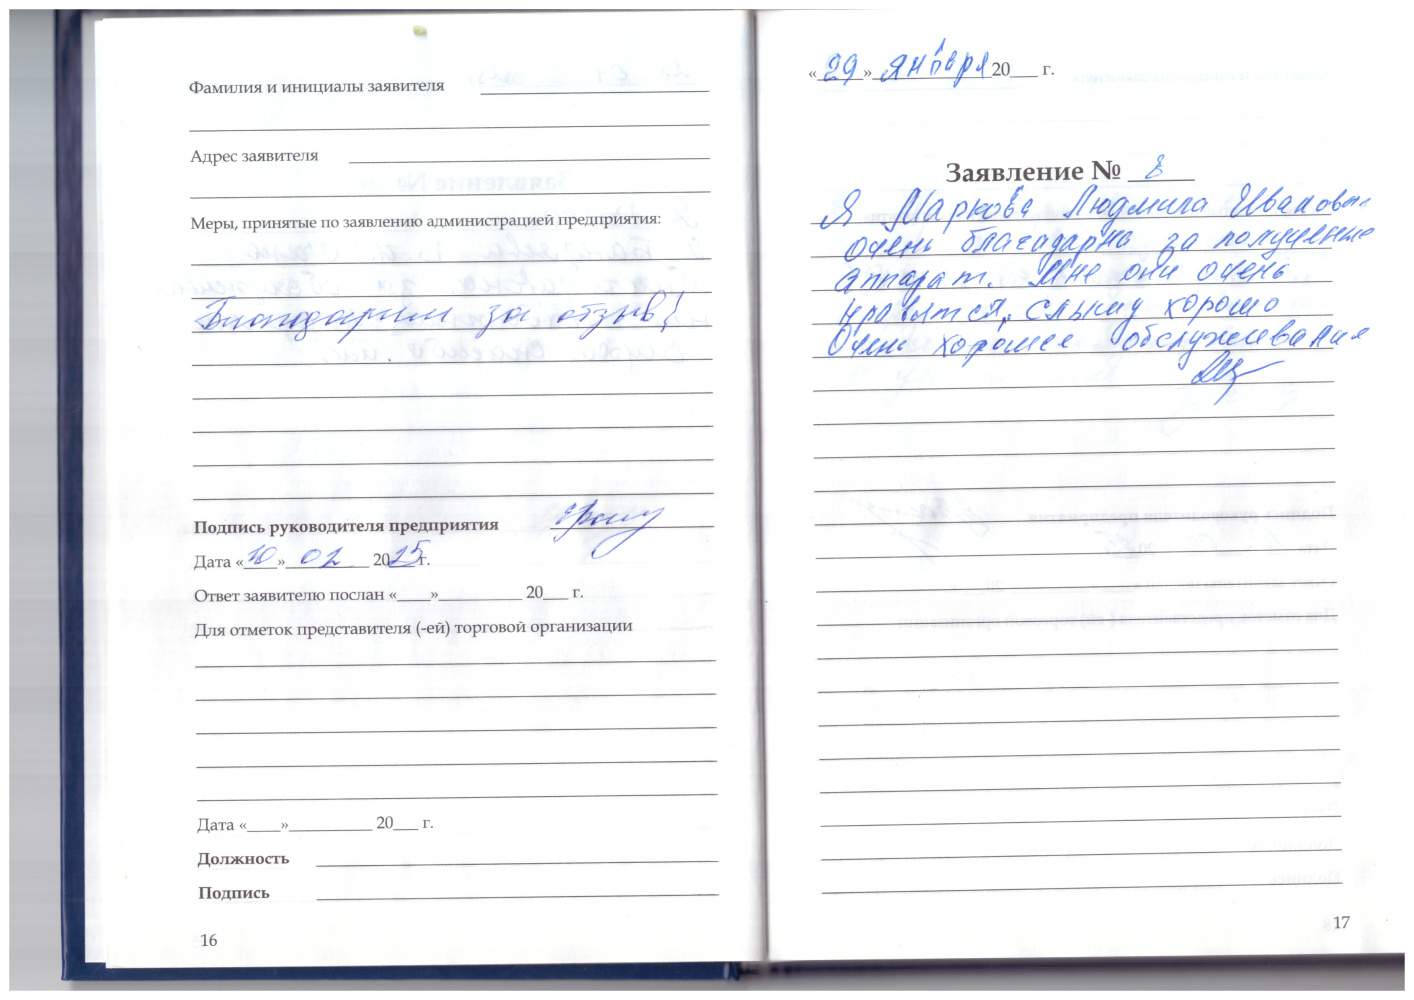 Фамилия и инициалы заявителя
Адрес заявителя
Меры, принятые по заявлению администрацией предприятия:
Благодарим за отзыв!
Подпись руководителя предприятия
Дата «10» 02 2025 г.
Ответ заявителю послан «____»__________ 20___ г.
Для отметок представителя (-ей) торговой организации
Дата «____»__________ 20___ г.
Должность
Подпись
16
«29» января 20___ г.
Заявление № 8
Я Маркова Людмила Ивановна
очень благодарна за полученные
аппарат. Мне они очень
нравятся, слышу хорошо
Очень хорошее обслуживания
17